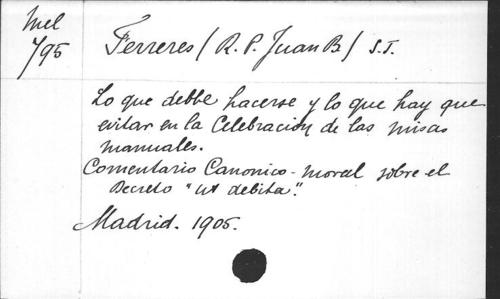 Mel
795
Ferreres (R. P. Juan B) S.J.
Lo que debbe hacerse y lo que hay que
evitar en la Celebracion de las misas
manuales.
Comentario Canonico-moral sobre el
Decreto "Ut debita".
Madrid. 1905.